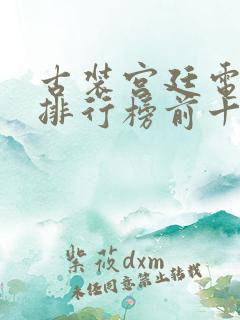 古装宫廷电
排行榜前十
紫筱dxm
未经同意禁止转载